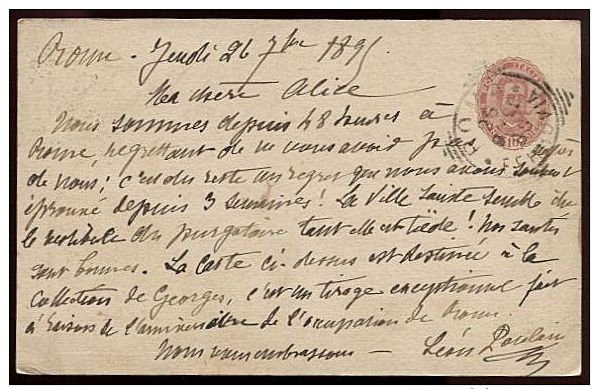 Rome - Jeudi 26 7bre 1895
Ma chère Alice
Nous sommes depuis 48 heures à
Rome, regrettant de ne vous avoir près
de nous ; c'est du reste un regret que nous avons souvent
éprouvé depuis 3 semaines ! La Ville Sainte semble être
le vestibule du purgatoire tant elle est tiède ! Nos santés
sont bonnes. La Carte ci-dessus est destinée à la
Collection de Georges, c'est un tirage exceptionnel fait
à raison de l'anniversaire de l'occupation de Rome.
Nous vous embrassons — Léon